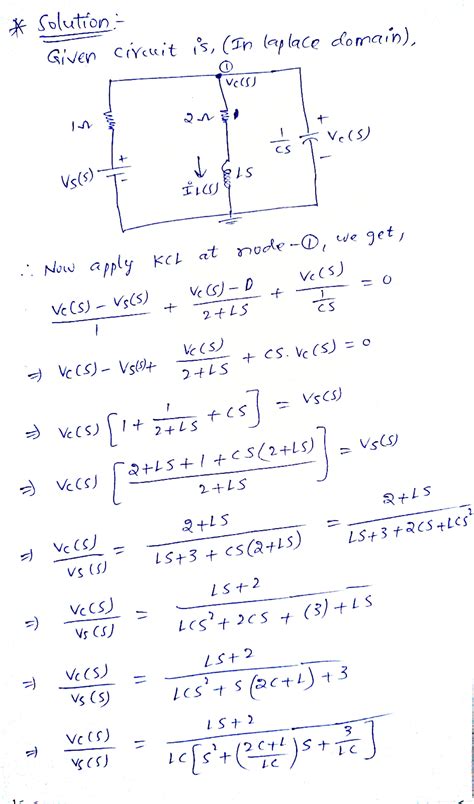 * Solution:-
Given circuit is, (In laplace domain),
①
Vc(s)
1Ω
2Ω
1/Cs
+
Vc(s)
-
Vs(s)
+
-
↓
IL(s)
LS
∴ Now apply KCL at node-①, we get,
(Vc(s) - Vs(s))/1 + (Vc(s) - 0)/(2+LS) + Vc(s)/(1/CS) = 0
⇒ Vc(s) - Vs(s) + Vc(s)/(2+LS) + CS. Vc(s) = 0
⇒ Vc(s) [1 + 1/(2+LS) + CS] = Vs(s)
⇒ Vc(s) [(2+LS+1+CS(2+LS))/(2+LS)] = Vs(s)
⇒ Vc(s)/Vs(s) = (2+LS)/(LS+3+CS(2+LS)) = (2+LS)/(LS+3+2CS+LCS²)
⇒ Vc(s)/Vs(s) = (LS+2)/(LCS²+2CS+(3)+LS)
⇒ Vc(s)/Vs(s) = (LS+2)/(LCS²+S(2C+L)+3)
⇒ Vc(s)/Vs(s) = (LS+2)/(LC[S²+((2C+L)/LC)S+3/LC])